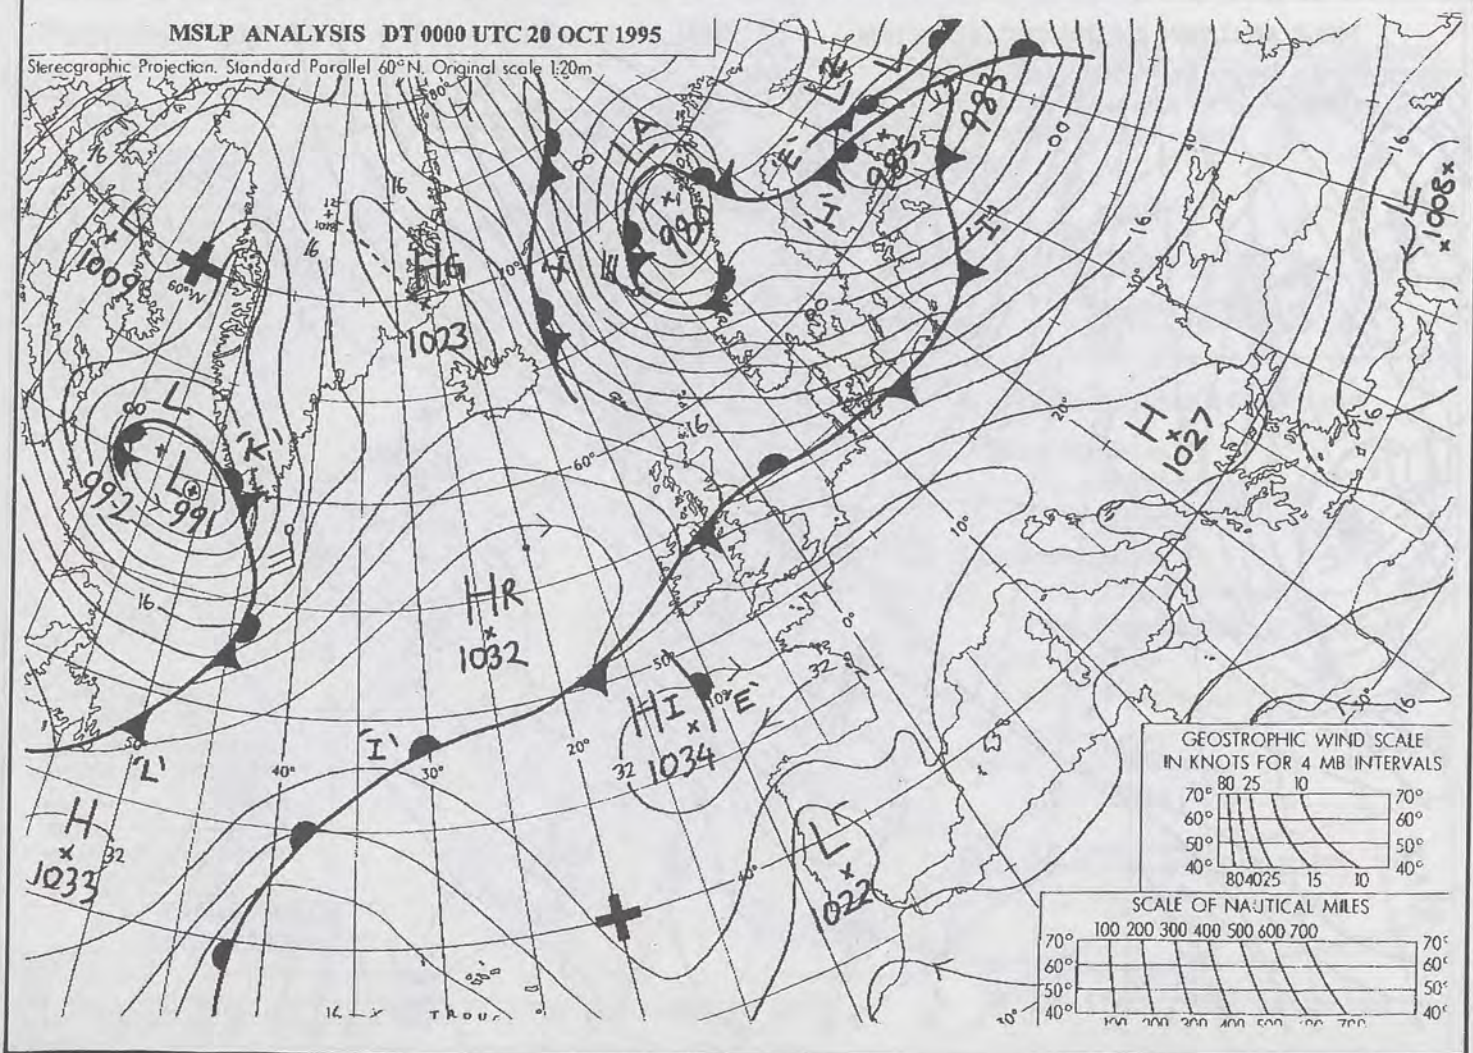 MSLP ANALYSIS DT 0000 UTC 20 OCT 1995
Stereographic Projection. Standard Parallel 60°N. Original scale 1:20m
80°
16
16
16
L
1009
60°W
12
1018
HG
1023
70°
'X'
00
LA
980
'E'
L
L
985
983
'I'
'I'
00
40
16
30°
16
L
1008
16
L
00
'K'
L
992
991
16
16
60°
20°
H
1027
10°
0°
HR
1032
50°
32
HI
1034
32
'E'
'I'
'L'
50
40°
30°
20°
H
1033
32
40°
L
1022
50°
16
30°
16
GEOSTROPHIC WIND SCALE
IN KNOTS FOR 4 MB INTERVALS
80 25 10
70° 70°
60° 60°
50° 50°
40° 40°
80 40 25 15 10
SCALE OF NAUTICAL MILES
100 200 300 400 500 600 700
70° 70°
60° 60°
50° 50°
40° 40°
100 200 300 400 500 600 700